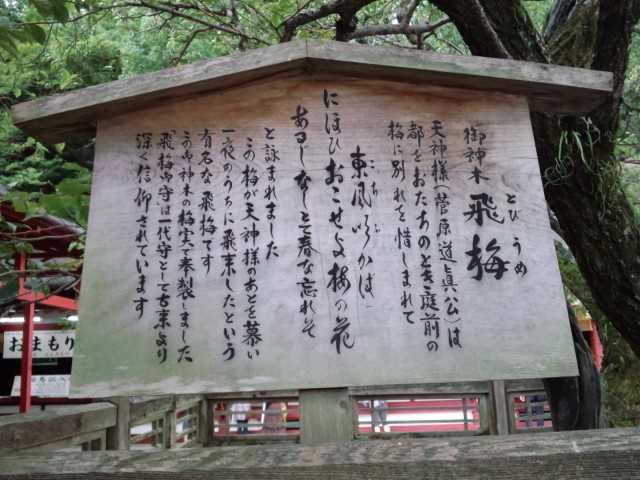 御神木 飛梅
とび うめ
天神様(菅原道眞公)は
都をおたちのとき庭前の
梅に別れを惜しまれて
東風吹かば
こち
にほひおこせよ梅の花
あるじなしとて春な忘れそ
と詠まれました
この梅が天神様のあとを慕い
一夜のうちに飛来したという
有名な飛梅です
この御神木の梅実で奉製しました
「飛梅御守」は一代守として古来より
深く信仰されています
おまもり